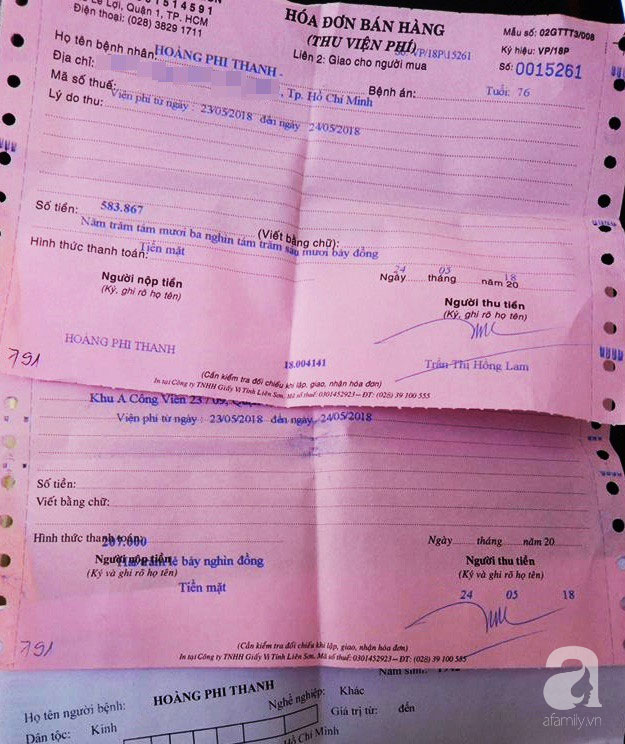 01514591
Lê Lợi, Quận 1, TP. HCM
Điện thoại: (028) 3829 1711
HÓA ĐƠN BÁN HÀNG
(THU VIỆN PHÍ)
Liên 2: Giao cho người mua
Mẫu số: 02GTTT3/008
Ký hiệu: VP/18P
Số: 0015261
VP/18P\15261
Họ tên bệnh nhân: HOÀNG PHI THANH -
Địa chỉ: , Tp. Hồ Chí Minh
Mã số thuế: Bệnh án: Tuổi: 76
Lý do thu: Viện phí từ ngày : 23/05/2018 đến ngày 24/05/2018
Số tiền: 583.867
(Viết bằng chữ):
Năm trăm tám mươi ba nghìn tám trăm sáu mươi bảy đồng
Hình thức thanh toán: Tiền mặt
Ngày 24 tháng 05 năm 20 18
Người nộp tiền
(Ký, ghi rõ họ tên)
Người thu tiền
(Ký, ghi rõ họ tên)
HOÀNG PHI THANH
18.004141
Trần Thị Hồng Lam
791
(Cần kiểm tra đối chiếu khi lập, giao, nhận hóa đơn)
In tại Công ty TNHH Giấy Vi Tính Liên Sơn. Mã số thuế: 0301452923 – ĐT: (028) 39 100 555
Khu A Công Viên 23 / 09, Quận
Viện phí từ ngày : 23/05/2018 đến ngày 24/05/2018
Số tiền:
Viết bằng chữ:
Hình thức thanh toán: 207.000
Ngày tháng năm 20
Người nộp tiền
Hai trăm lẻ bảy nghìn đồng
(Ký và ghi rõ họ tên)
Tiền mặt
Người thu tiền
(Ký và ghi rõ họ tên)
24 05 18
791
(Cần kiểm tra đối chiếu khi lập, giao, nhận hóa đơn)
In tại Công ty TNHH Giấy Vi Tính Liên Sơn. Mã số thuế: 0301452923 – ĐT: (028) 39 100 585
Năm sinh: 1942
Họ tên người bệnh: HOÀNG PHI THANH
Nghề nghiệp: Khác
Dân tộc: Kinh
Giá trị từ: đến
Hồ Chí Minh
a
afamily.vn